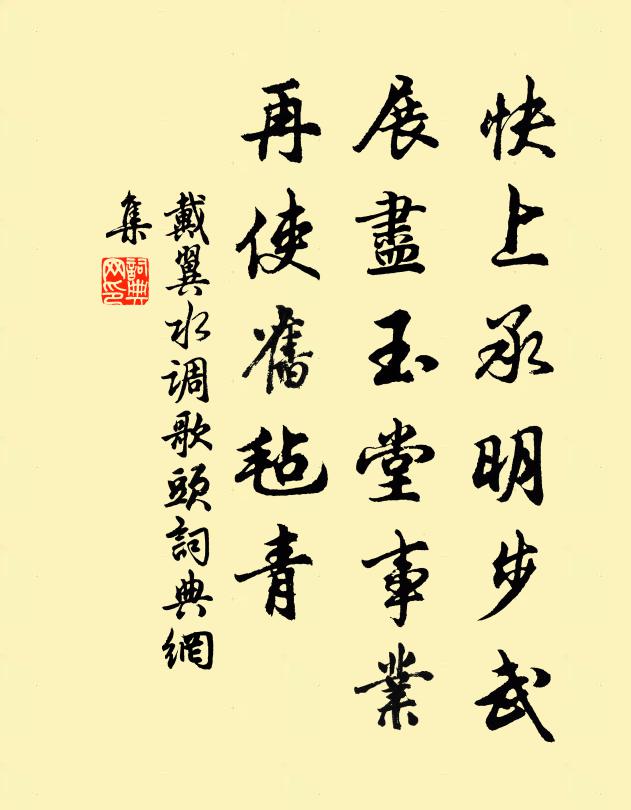 快上承明步武
展盡玉堂事業
再使舊毡青
戴翼水调歌頭詞典網
集
詞典
网印